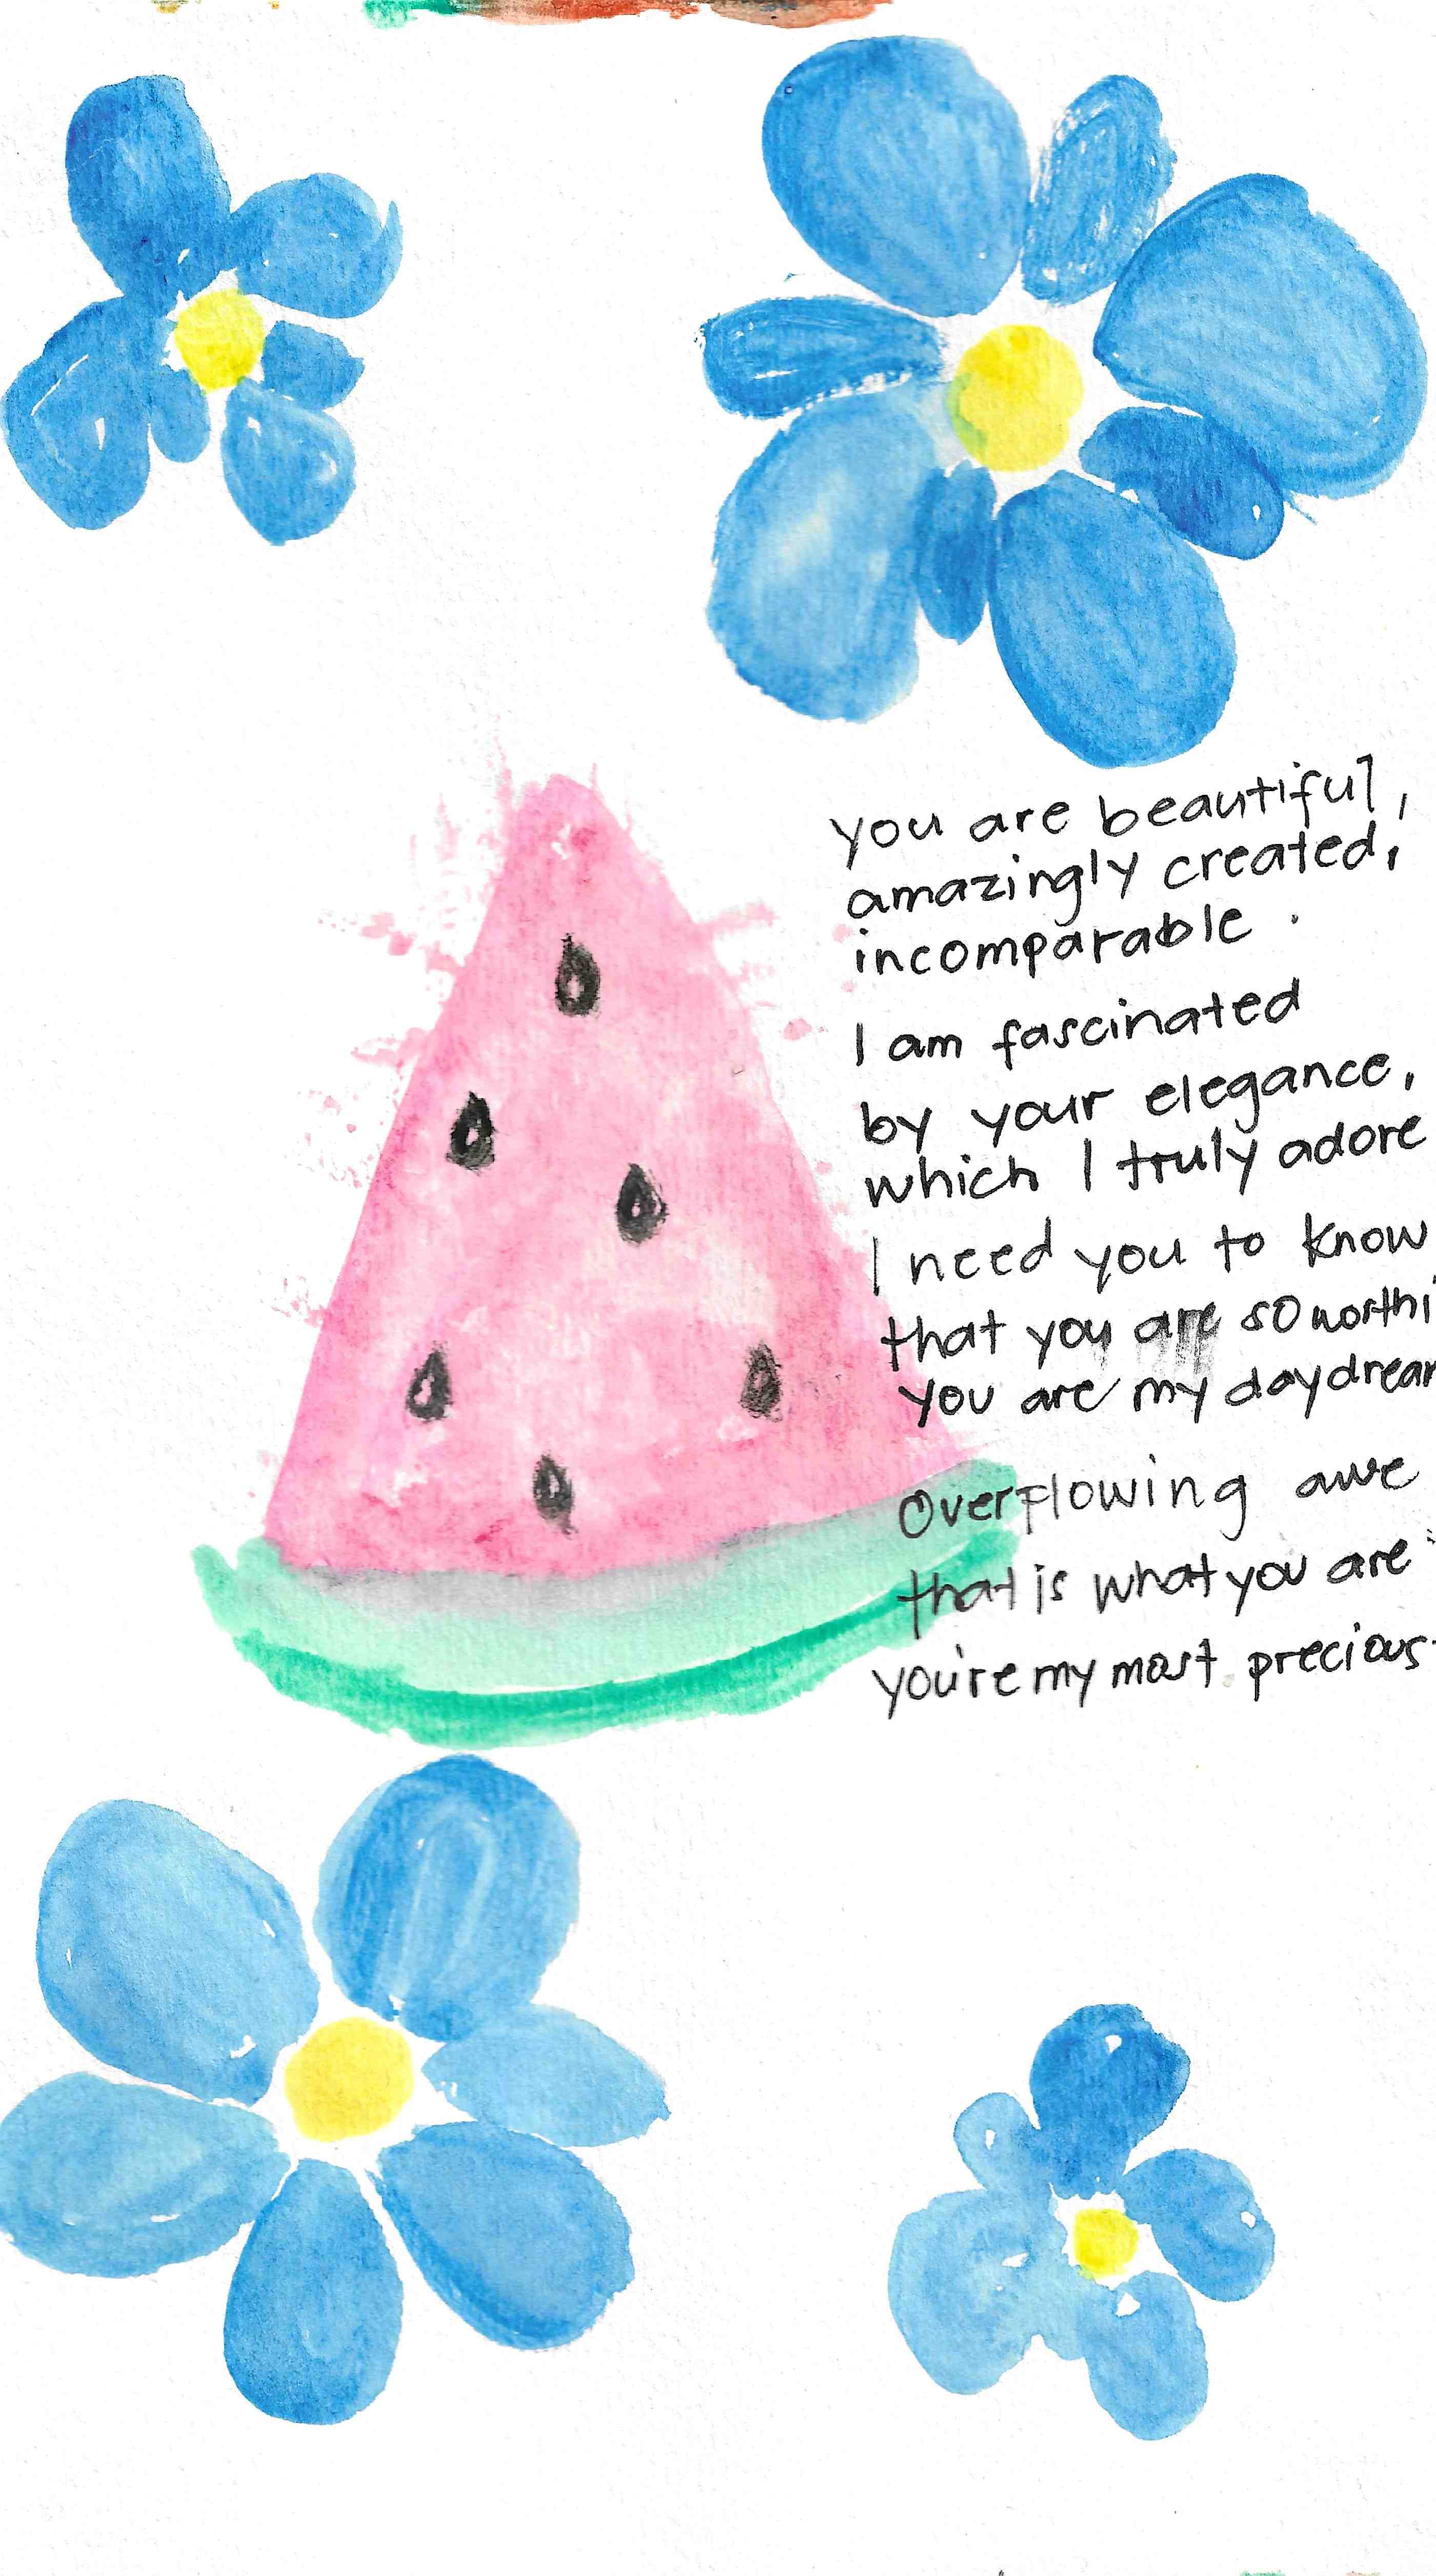 you are beautiful,
amazingly created,
incomparable.
I am fascinated
by your elegance,
which I truly adore
I need you to know
that you are so worthi
you are my daydrear
Overflowing awe
that is what you are
you're my most precious